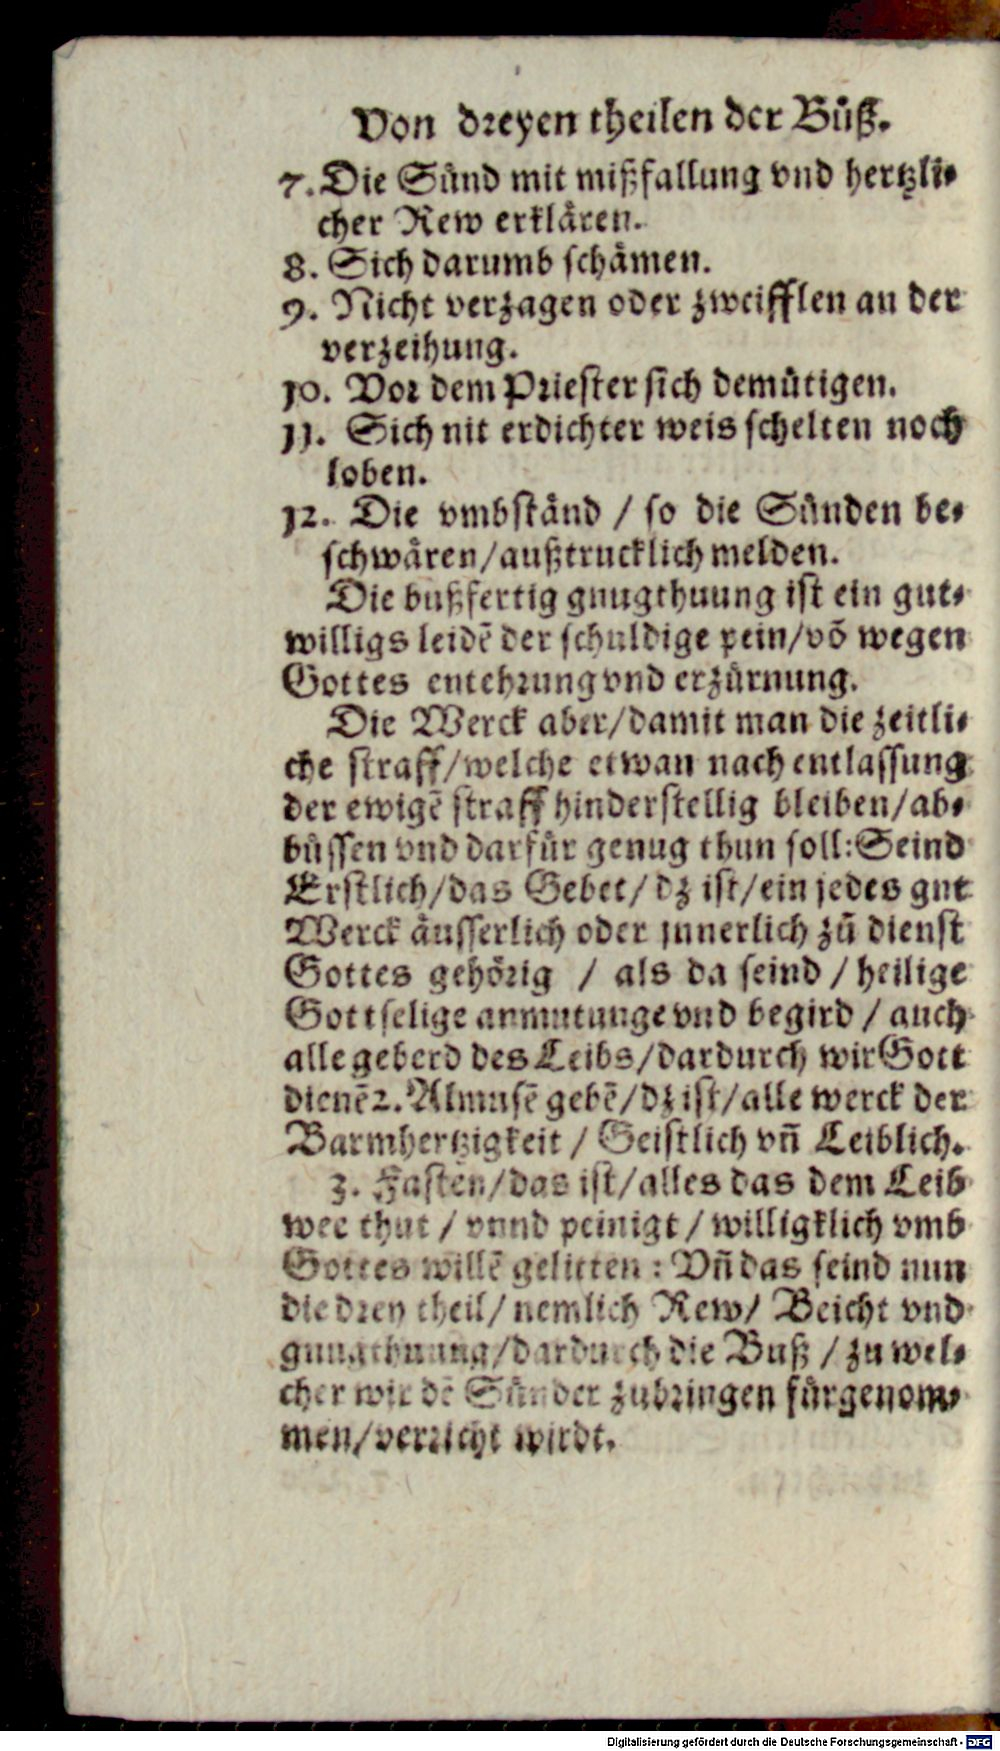 Von dreyen theilen der Bůß.
7. Die Sünd mit mißfallung vnd hertzli-
cher Rew erklären.
8. Sich darumb schämen.
9. Nicht verzagen oder zweifflen an der
verzeihung.
10. Vor dem Priester sich demütigen.
11. Sich nit erdichter weis schelten noch
loben.
12. Die vmbständ / so die Sünden be-
schwären/außtrucklich melden.
Die bußfertig gnugthuung ist ein gut-
willigs leidē der schuldige pein/võ wegen
Gottes entehrung vnd erzürnung.
Die Werck aber/damit man die zeitli-
che straff/welche etwan nach entlassung
der ewigē straff hinderstellig bleiben/ab-
büssen vnd darfür genug thun soll: Seind
Erstlich/das Gebet/ dz ist/ein jedes gut
Werck äusserlich oder jnnerlich zů dienst
Gottes gehörig / als da seind / heilige
Gottselige anmutunge vnd begird / auch
alle geberd des Leibs/dardurch wir Gott
dienē 2. Almusē gebē/dz ist/alle werck der
Barmhertzigkeit / Geistlich vñ Leiblich.
3. Fasten/das ist/alles das dem Leib
wee thut / vnnd peinigt / willigklich vmb
Gottes willē gelitten : Vñ das seind nun
die drey theil/ nemlich Rew/ Beicht vnd
gnugthuung/dardurch die Buß / zu wel-
cher wir dē Sünder zubringen fürgenom-
men/verricht wirdt.
Digitalisierung gefördert durch die Deutsche Forschungsgemeinschaft - DFG